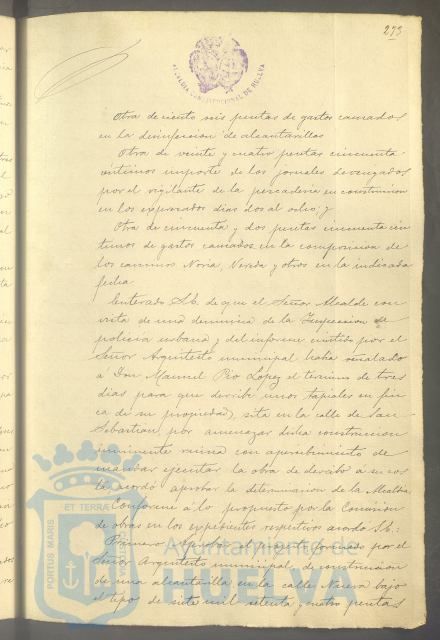 273
ALCALDIA CONSTITUCIONAL DE HUELVA
Otra de ciento seis pesetas de gastos causados
en la desinfeccion de alcantarillas
Otra de veinte y cuatro pesetas cincuenta
centimos importe de los jornales devengados
por el vigilante de la pescaderia en construccion
en los expresados dias dos al ocho, y
Otra de cincuenta y dos pesetas cincuenta cén
timos de gastos causados en la compostura de
los caminos Noria, Vereda y otros en la indicada
fecha.
Enterado S.E. de que el Señor Alcalde con
vista de una denuncia de la Inspeccion de
policia urbana y del informe emitido por el
Señor Arquitecto municipal habia señalado
a Don Manuel Pio López el termino de tres
dias para que derribe unos tapiales en fin
ca de su propiedad, sita en la calle de San
Sebastian por amenazar dicha construccion
inminente ruina con apercibimiento de
mandar ejecutar la obra de derribo a su cos
ta, acordó aprobar la determinacion de la Alcaldia
Conforme a lo propuesto por la Comision
de obras en los expedientes respectivos acordó S.E.:
Primero: Aprobar el proyecto formado por el
Señor Arquitecto municipal de construccion
de una alcantarilla en la calle Nueva bajo
el tipo de siete mil setenta y cuatro pesetas
ET TERRA
PORTUS MARIS
Ayuntamiento de
HUELVA